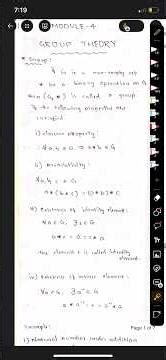 7:19
MODULE-4
GROUP THEORY
* Group:
G is a non-empty set
* be a binary operation on G
then (G,*) is called a group
if the following properties are
satisfied
i) closure property:
∀a,b ∈ G ⇒ a*b ∈ G
ii) Associativity:
a*(b*c) = (a*b)*c
iii) Existence of identity element:
∀a∈G, ∃e∈G
a*e = a = e*a
the element e is called identity
element.
iv) Existence of inverse element:
∀a∈G, ∃a⁻¹∈G
a*a⁻¹ = e = a⁻¹*a
Page 1 of
Example:
i) natural number under addition